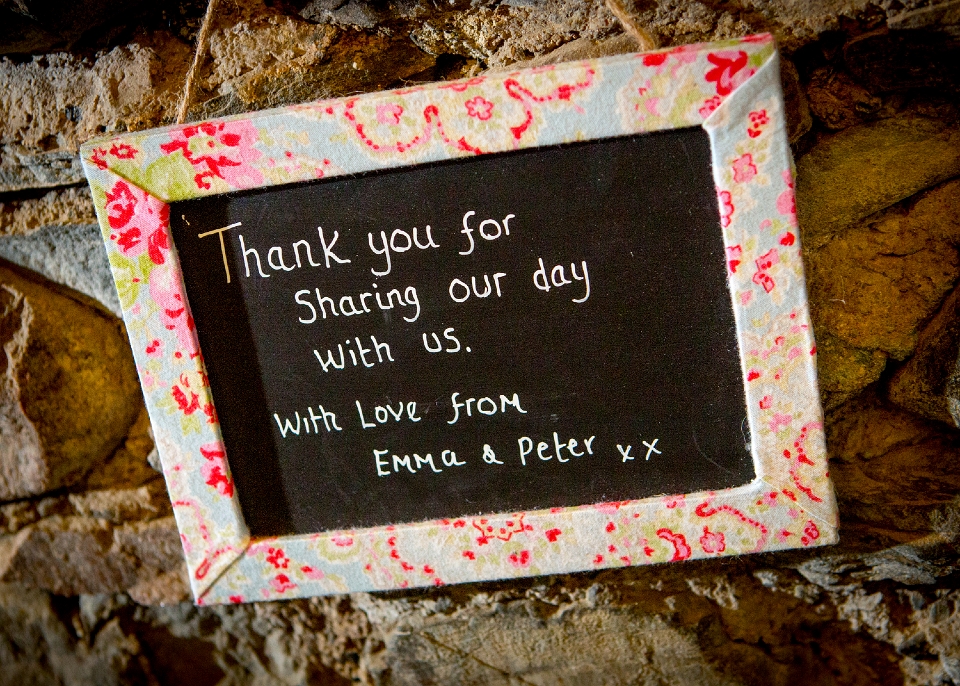 Thank you for
Sharing our day
With us.
With Love from
Emma & Peter x x